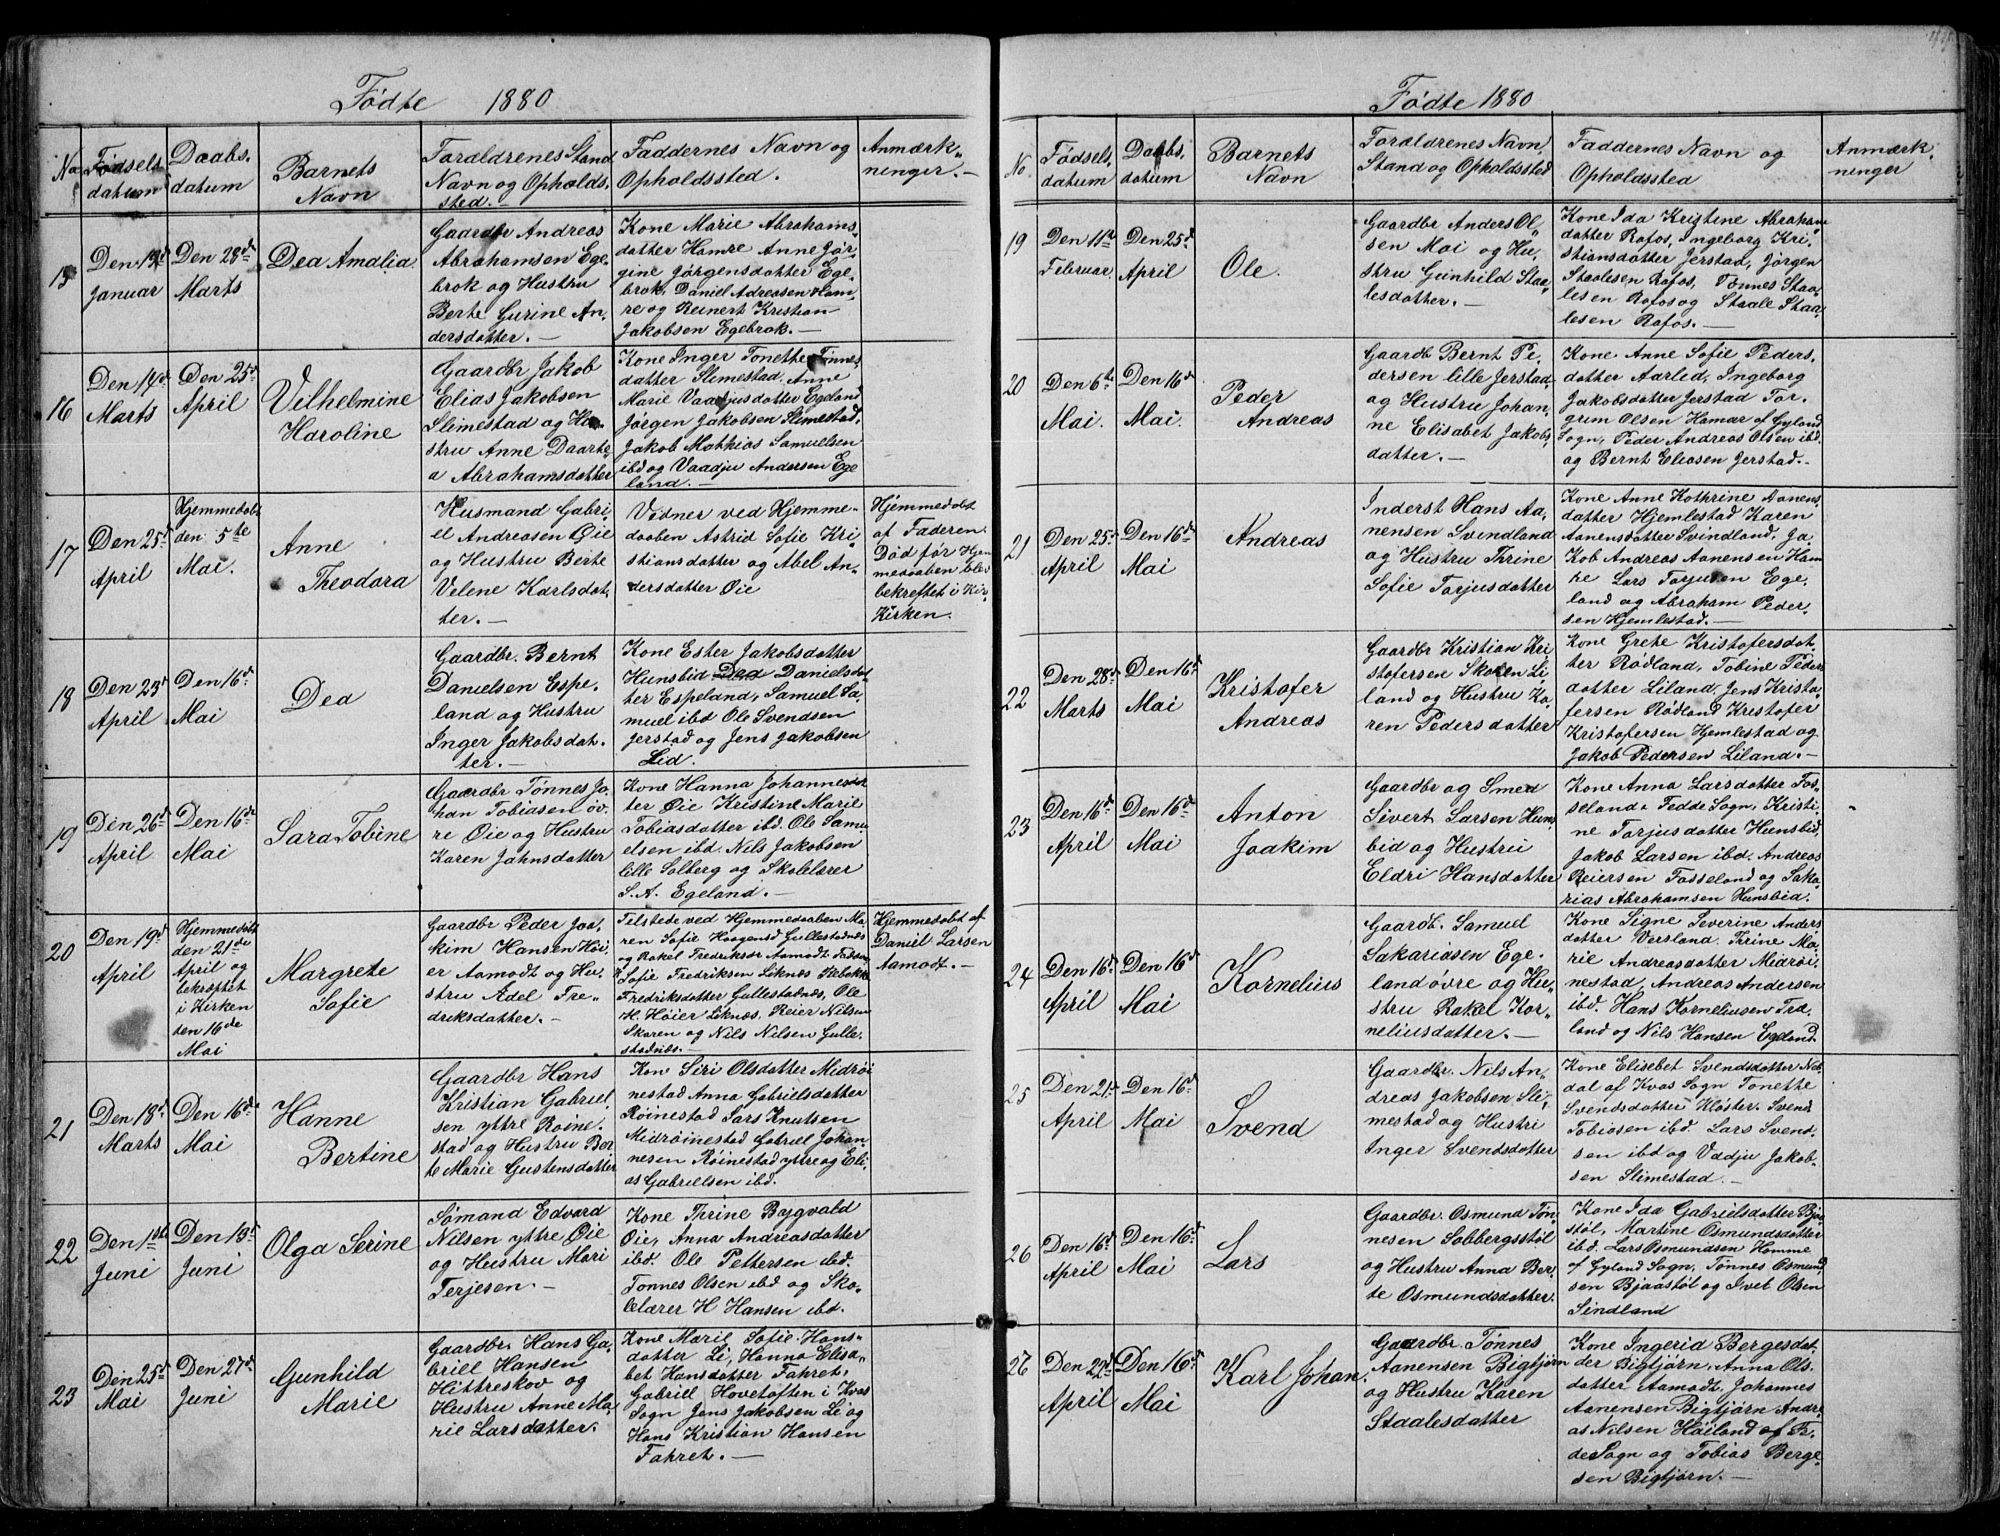 Fødte 1880
No
Fødsels
datum
Daabs.
datum
Barnets
Navn
Foraldrenes Stand
Navn og Opholds.
sted.-
Faddernes Navn og
Opholdssted.
Anmærk-
ninger.-
15
Januar
Den 28de
Marts
Dea Amalia
Gaardbr Andreas
Abrahamsen Ege-
brok og Hustru
Berte Gurine An-
dersdatter.-
Kone Marie Abrahams-
datter Hamre Anne Jør-
gine Jørgensdatter Ege-
brok, Daniel Adreasen Ham-
re og Reinert Kristian
Jakobsen Egebrok.-
16
Den 14d.
Marts
Den 25d
April
Vilhelmine
Haroline
Gaardbr Jakob
Elias Jakobsen
Slimestad og Hu-
stru Anne Daarte-
a Abrahamsdatter
Kone Inger Tonette Tönnes
datter Slimestad. Anne
Marie Vaadjusdatter Egeland
Jörgen Jakobsen Slimestad.
Jakob Mathias Samuelsen
ibd og Vaadju Andersen Ege
land.-
17
Den 25d
April
Hjemmedøbt
den 5te
Mai.
Anne
Theodora
Husmand Gabri-
el Andreasen Øie
og Hustru Berte
Velene Karlsdat-
ter.-
Vidner ved Hjemme-
daaben Astrid Sofie Kri-
stiansdatter og Abel An-
dersdatter Øie
Hjemmedøbt
af Faderen.
Død før Hjem
medaaben blev
bekreftet i Kir-
Kirken.
18
Den 23d
April
Den 16d.
Mai
Dea
Gaardbr. Bernt
Danielsen Espe-
land og Hustru
Inger Jakobsdat-
ter.-
Kone Ester Jakobsdatter
Hunsbid Dea Danielsdat
ter Espeland, Samuel Sa-
muel ibd Ole Svendsen
Jerstad og Jens Jakobsen
Lid.
19
Den 26d
April
Den 16de
Mai
Sara Tobine
Gaardbr Tönnes Jo-
han Tobiasen øv-
re Øie og Hustru
Karen Jahnsdatter
Kone Hanna Johannesdat
ter Øie Kristine Marie
Tobiasdatter ibd. Ole Samu
elsen ibd. Nils Jakobsen
lille Solberg og Skolelærer
S. A. Egeland.-
20
Den 19d
April
Hjemmedøbt
den 21de
April og
bekræftet
i Kirken
den 16de
Mai
Margrete
Sofie
Gaardbr Peder Joa-
kim Hansen Høi-
er Aamodt og Hu-
stru Adel Fre-
driksdatter.-
Tilstede ved Hjemmedaaben Ma-
ren Sofie Haagensd Gullestadnæs
og Rakel Fredriksdr Aamodt
Sofie Fredriksen Liknæs
Fredriksdatter Gullestadnæs, Ole
H. Høier Liknæs. Reier Nilsen
Skaren og Nils Nilsen Gulle-
stadnæs.-
Hjemmedøbt af
Daniel Larsen
Aamodt.-
21
Den 18d
Marts
Den 16de
Mai
Hanne
Bertine
Gaardbr Hans
Kristian Gabriel
sen yttre Roine-
stad og Hustru Ber-
te Marie Gustensdatter
Kon Siri Olsdatter Midröi
nestad Anna Gabrielsdatter
Röinestad Lars Knutsen
Midröinestad Gabriel Johan-
nesen Röinestad yttre og Eli-
as Gabrielsen ibd.
22
Den 1ste
Juni
Den 13d
Juni
Olga Serine
Sømand Edvard
Nilsen yttre Øie
og Hustru Mari
Terjesen.-
Kone Thrine Bygvald
Øie, Anna Andreasdatter
ibd. Ole Pettersen ibd.
Tonnes Olsen ibd og Sko-
lelærer H Hansen ibd.
23
Den 25d
Mai
Den 27d.
Juni
Gunhild
Marie
Gaardbr. Hans Ga-
briel Hansen
Hittreskov og
Hustru Anne Ma-
rie Larsdatter.
Kone Marie Sofie Hans-
datter Li, Hanna Elisa-
bet Hansdatter Fahret.
Gabriel Hovetoften i Kvas
Sogn Jens Jakobsen Li og
Hans Kristian Hansen
Fahret.-
Fødte 1880
No.
Fødsels.
datum
Daabs.
datum
Barnets
Navn
Foraldrenes Navn,
Stand og Opholdssted
Faddernes Navn og
Opholdssted
Anmærk-
ninger
19
Den 11te
Februar.
Den 25d
April
Ole.
Gaardbr Anders Ol-
sen Moi og Hu-
stru Gunhild Staa-
lesdatter.-
Kone Ida Kristine Abraham
datter Rafos, Ingeborg Kri-
stiansdatter Jerstad, Jørgen
Staalesen Rafos, Tönnes Staa-
lesen Rafos og Staale Staa-
lesen Rafos.-
20
Den 6te
Mai.
Den 16d
Mai.
Peder
Andreas
Gaardb Bernt Pe-
dersen lille Jerstad
og Hustru Johan-
ne Elisabet Jakobs-
datter.-
Kone Anne Sofie Peders-
datter Aarlid, Ingeborg
Jakobsdatter Jerstad Tor-
gum Olsen Hamar af Gyland
Sogn, Peder Andreas Olsen ibd.
og Bernt Eliasen Jerstad.-
21
Den 25d
April
Den 16de
Mai
Andreas
Inderst Hans Aa-
nensen Svindland
og Hustru Thrine
Sofie Torjusdatter
Kone Anne Kathrine Aanens
datter Hjemlestad Karen
Aanensdatter Svindland, Ja-
Kob Andreas Aanensen Ham
re Lars Torjusen Ege-
land og Abraham Peder-
sen Hjemlestad.-
22
Den 28d
Marts
Den 16d.
Mai
Kristofer
Andreas
Gaardbr Kristian Kri
stofersen Skoren Li-
land og Hustru Ka-
ren Pedersdatter
Kone Grete Kristofersdat-
ter Rødland, Tobine Peder
datter Liland Jens Kristo-
fersen Rødland Kristofer
Kristofersen Hjemlestad og
Jakob Pedersen Liland.-
23
Den 16d
April
Den 16de
Mai
Anton
Joakim
Gaardbr og Smed
Sivert Larsen Huns-
bid og Hustru
Eldri Hansdatter
Kone Anna Larsdatter Fos-
seland i Fedde Sogn, Kristi-
ne Torjusdatter Hunsbid,
Jakob Larsen ibd. Andreas
Reiersen Fosseland og Saka-
rias Abrahamsen Hunsbid.
24
Den 16d.
April
Den 16d
Mai
Kornelius
Gaardb. Samuel
Sakariasen Ege-
land øvre og Hu-
stru Rakel Kor-
neliusdatter.-
Kone Signe Severine Anders
datter Versland. Trine Ma-
rie Andreasdatter Midröi-
nestad, Andreas Andersen
ibd. Hans Korneliusen Tra-
land og Nils Hansen Egeland
25
Den 21d
April
Den 16d.
Mai
Svend
Gaardbr. Nils An-
dreas Jakobsen Sli-
mestad og Hustri
Inger Svendsdatter
Kone Elisebet Svendsdatter
dal af Kvas Sogn Tonette
Svendsdatter Kloster. Svend
Tobiasen ibd. Lars Svend-
sen ibd og Vadju Jakob-
sen Slimestad.-
26
Den 16d
April
Den 16d.
Mai
Lars
Gaardbr. Osmund Tön-
nesen Solbergsstøl
og Hustru Anna Ber-
te Osmundsdatter.
Kone Ida Gabrielsdatter
støl, Martine Osmundsdatter
ibd. Lars Osmundsen Homme
af Gyland Sogn, Tönnes Osmund
sen Bjaastøl og Ivet Olsen
Sindland
27
Den 22d
April
Den 16d
Mai
Karl Johan.
Gaardbr. Tønnes
Aanensen Bigtjørn
og Hustru Karen
Staalesdatter
Kone Ingerid Bergesdat-
der Bigtjørn. Anna Ols-
datter Aamodt, Johannes
Aanensen Bigtjørn Andre
as Nilsen Høiland af Fe-
de Sogn og Tobias Berge-
sen Bigtjørn.-